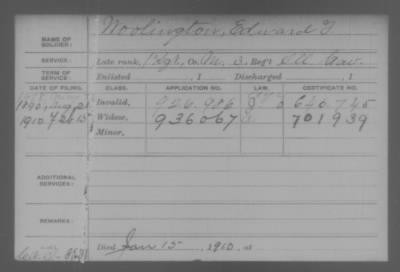 NAME OF SOLDIER: Woolington, Edward T
SERVICE: Late rank, Co. M, 3, Reg't Ill Cav.
TERM OF SERVICE: Enlisted , 1 Discharged , 1
DATE OF FILING. CLASS. APPLICATION NO. LAW. CERTIFICATE NO.
1890, Aug 2 Invalid, 926.986 640.745
1910 Feb 15 Widow, 936067 701939
Minor,
ADDITIONAL SERVICES:
REMARKS:
Died Jan 15, 1910, at